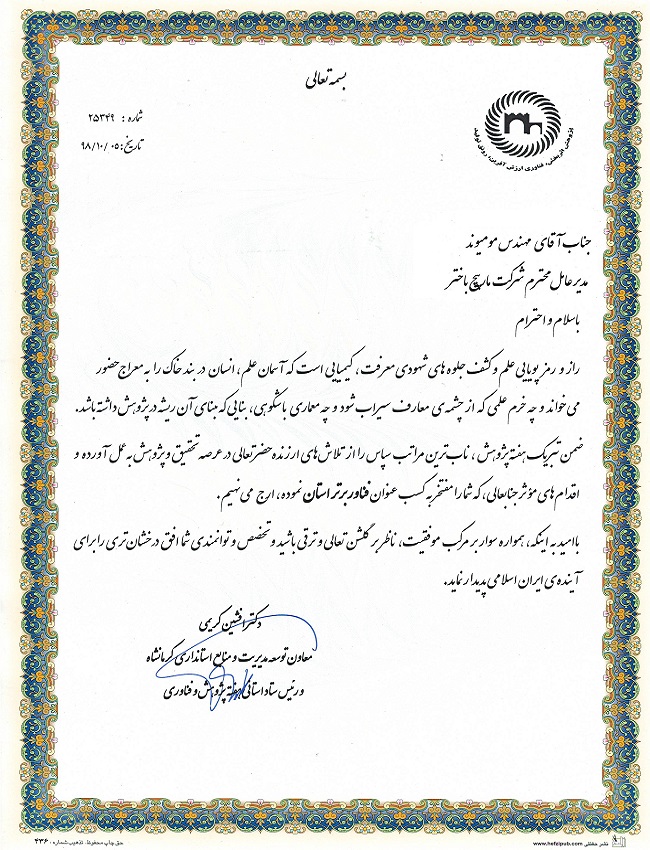 بسمه تعالی
شماره : ۲۵۳۴۹
تاریخ: ۹۸/۱۰/۰۵
پژوهش اثربخش، فناوری ارزش آفرین، رونق تولید
جناب آقای مهندس مومیوند
مدیرعامل محترم شرکت مارپیچ باختر
باسلام و احترام
راز و رمز پویایی علم و کشف جلوه های شهودی معرفت، کیمیایی است که آسمان علم، انسان در بند خاک را به معراج حضور
می خواند و چه خرم علمی که از چشمه ی معارف سیراب شود و چه معماری باشکوهی، بنایی که مبنای آن ریشه در پژوهش داشته باشد.
ضمن تبریک هفته پژوهش، ناب ترین مراتب سپاس را از تلاش های ارزنده حضرتعالی در عرصه تحقیق و پژوهش به عمل آورده و
اقدام های مؤثر جنابعالی، که شما را مفتخر به کسب عنوان فناور برتر استان نموده، ارج می نهیم.
باامید به اینکه، همواره سوار بر مرکب موفقیت، ناظر بر گلشن تعالی و ترقی باشید و تخصص و توانمندی شما افق درخشان تری را برای
آینده ی ایران اسلامی پدیدار نماید.
دکتر افشین کریمی
معاون توسعه مدیریت و منابع استانداری کرمانشاه
و رئیس ستاد استانی هفته پژوهش و فناوری
نشر حفظی www.hefzipub.com
حق چاپ محفوظ. تذهیب شماره: ۴۳۶